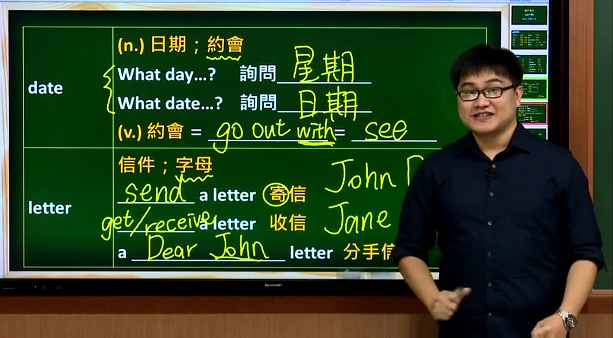 (n.) 日期；約會
What day...? 詢問 星期
date
What date...? 詢問 日期
(v.) 約會 = go out with = see
信件；字母
send a letter 寄信 John
letter
get/receive a letter 收信 Jane
a Dear John letter 分手信
SHARP